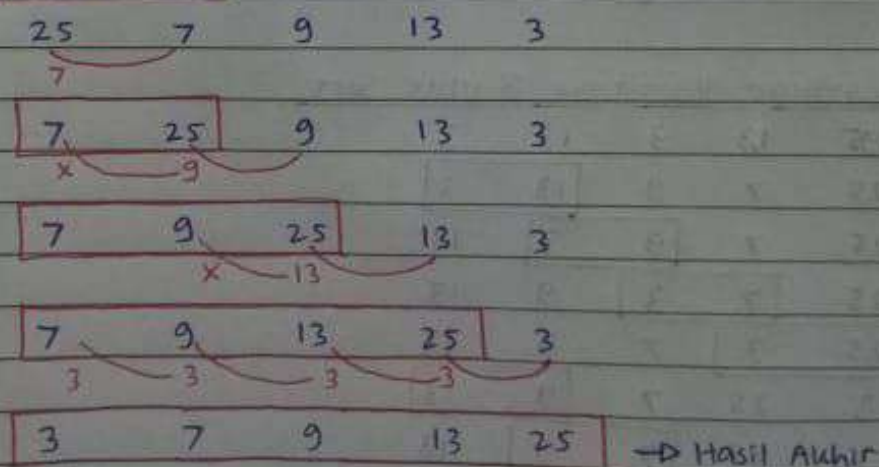 25 7 9 13 3
7
7 25 9 13 3
x 9
7 9 25 13 3
x 13
7 9 13 25 3
3 3 3 3
3 7 9 13 25 → Hasil Akhir